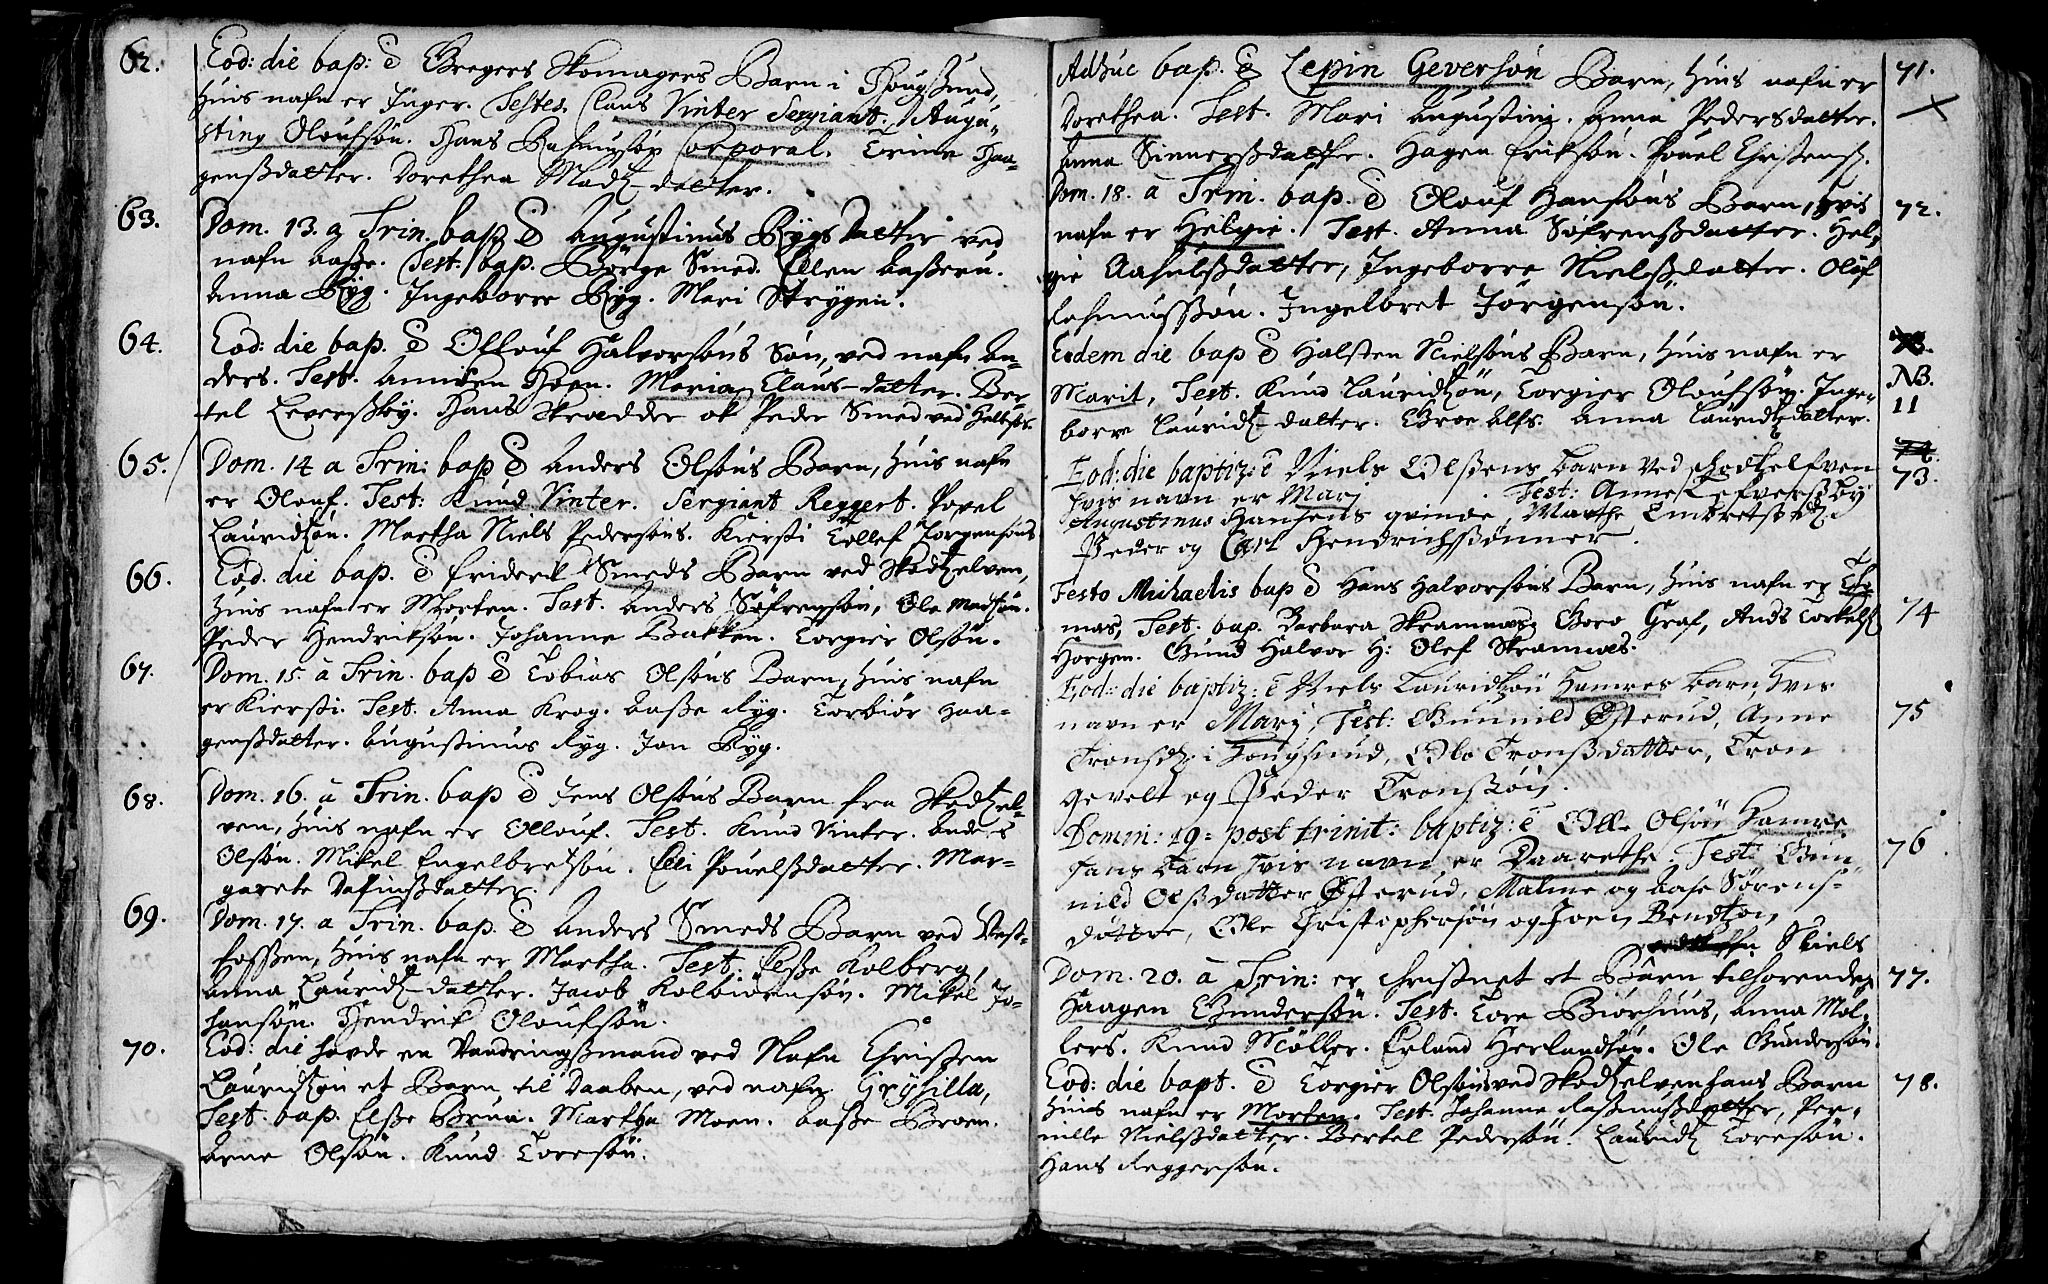 62. Eod: die bap: ē Gregers Skomagers Barn i
Huis nafn er Inger. Testes. Claus Vinter Sergiant. Augu-
sting Oloufsøn. Hans Rasmusøn Corporal. Trine Haa-
genßdatter. Dorethea Madtz-datter.
63. Dom. 13. a Trin. bap ē Augustinus Rygs Datter ved
nafn Aaße. Test: bap. Børge Smed. Ellen Aaßeru.
Anna Ryg. Ingeborre Ryg. Mari Strygen.
64. Eod: die bap. ē Ollouf Halvorsøns Søn, ved nafn An-
ders. Test. Anniken Hoen. Maria Claus-datter. Ber
tel Leverßby. Hans Skrædder ok Peder Smed ved
65. Dom. 14 a Trin: bap ē Anders Olsøns Barn, Huis nafn
er Olouf. Test: Knud Vinter. Sergiant Reggert. Povel
Lauridtzøn. Martha Niels Pedersøns. Kiersti Tollef Jorgensøns
66. Eod. die bap. ē Friderik Smeds Barn ved Skodtzelven,
Huis nafn er Morten. Test. Anders Søfrensøn, Ole Madsøn.
Peder Hendriksøn. Johanne Bakken. Torgier Olsøn.
67. Dom. 15. a Trin. bap ē Tobias Olsøns Barn, Huis nafn
er Kiersti. Test. Anna Krog. Aaße Ryg. Torbiør Haa-
genßdatter. Augustinus Ryg. Jon Ryg.
68. Dom. 16. a Trin. bap ē Jens Olsøns Barn fra Skodtzel-
ven, Huis nafn er Ollouf. Test. Knud Vinter. Anders
Olsøn. Mikel Engelbretsøn. Elli Pouelßdatter. Mar-
garete Dafinßdatter.
69. Dom. 17. a Trin. bap. ē Anders Smeds Barn ved Vest-
foßen, Huis nafn er Martha. Test. Elße Kolberg,
Anna Lauridtz-datter. Jacob Kolbiørensøn. Mikel Jo-
hansøn. Hendrik Oloufsøn.
70. Eod: die hafde en Vandringßmand ved Nafn Christen
Lauridtzøn et Barn til Daaben, ved nafn Grysilla,
Test. bap. Elße Bruu. Martha Moen. Aaße Broen.
Arne Olsøn. Knud Toresøn.
Adhuc bap. ē Lepin Geversøn Barn, Huis nafn er 71.
Dorethea. Test. Mari Augustini. Anna Pedersdatter.
Anna Sinnerßdatter. Hagen Eriksøn. Pouel Christens.
Dom. 18. a Trin. bap. ē Olouf Hansøns Barn, Hvis 72.
nafn er Helgie. Test. Anna Søfrenßdatter. Hel-
gie Aasulßdatter, Ingeborre Nielßdatter. Olof
Rasmusßøn. Ingelbret Jörgensøn.
Eodem die bap ē Halsten Nielsøns Barn, Huis nafn er NB.
Marit, Test. Knud Lauridtzøn, Torgier Oloufsøn. Inge- 11
borre Lauridtz-datter. Groe Alfs. Anna Lauridtzdatter.
Eod: die baptiz: ē Niels Olßens barn ved Schodtzelfven 73.
hvis navn er Mari. Test: Anne Lefverßby
Augustinus Hansens qvinde, Marthe
Peder og Carl Hendrichßønner.
Festo Michaelis bap ē Hans Halvorsøns Barn, Huis nafn er Tho 74
mas, Test. bap. Barbara Skramnæs, Goro Graf, Ands Torkels
Horgen. Gund Halvor H: Olef Skramnæs.
Eod: die baptiz: ē Niels Lauridtzøn Hamres barn, hvis 75
navn er Mari, Test: Gunnild Østerud, Anne
Tronsd: i, Oloe Tronßdatter, Tron
Gevelt og Peder Tronßøn.
Domin: 19= post trinit: baptiz: ē Olle Olsøn Hamre 76
hans barn hvis navn er Daarethe. Test: Gun
nild Olßdatter Østerud, Malene og Aase Sørens-
døttre, Ole Christophersøn og Joen Bendtzøn
Niels
Dom. 20. a Trin: er christnet et Barn tilhorende 77.
Haagen Gundersøn. Test. Tore Biørhuus, Anna Møl-
lers. Knud Møller. Erland Herlandsøn. Ole Gundersøn.
Eod: die bapt. ē Torgier Olsøn ved Skodtzelven hans Barn 78.
Huis nafn er Morten. Test. Johanne Rasmußdatter, Per-
nille Nielßdatter. Bertel Pedersøn. Lauridtz Toresøn.
Hans Reggersøn.